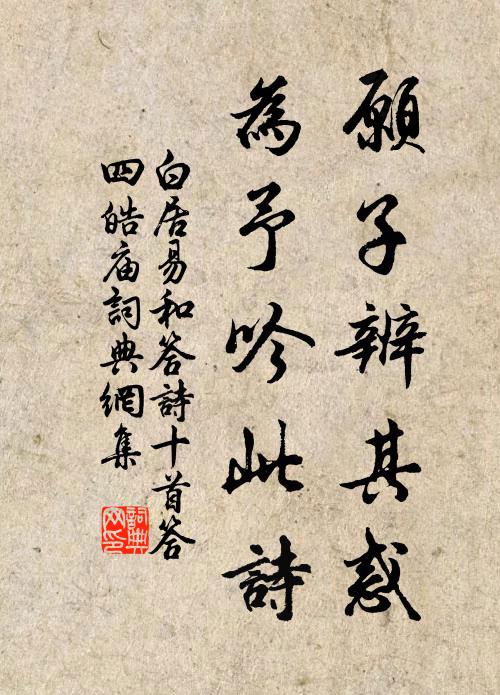 願子辨其惑
為予吟此詩
白居易和答詩十首答
四皓庙詞典網集
詞典网印